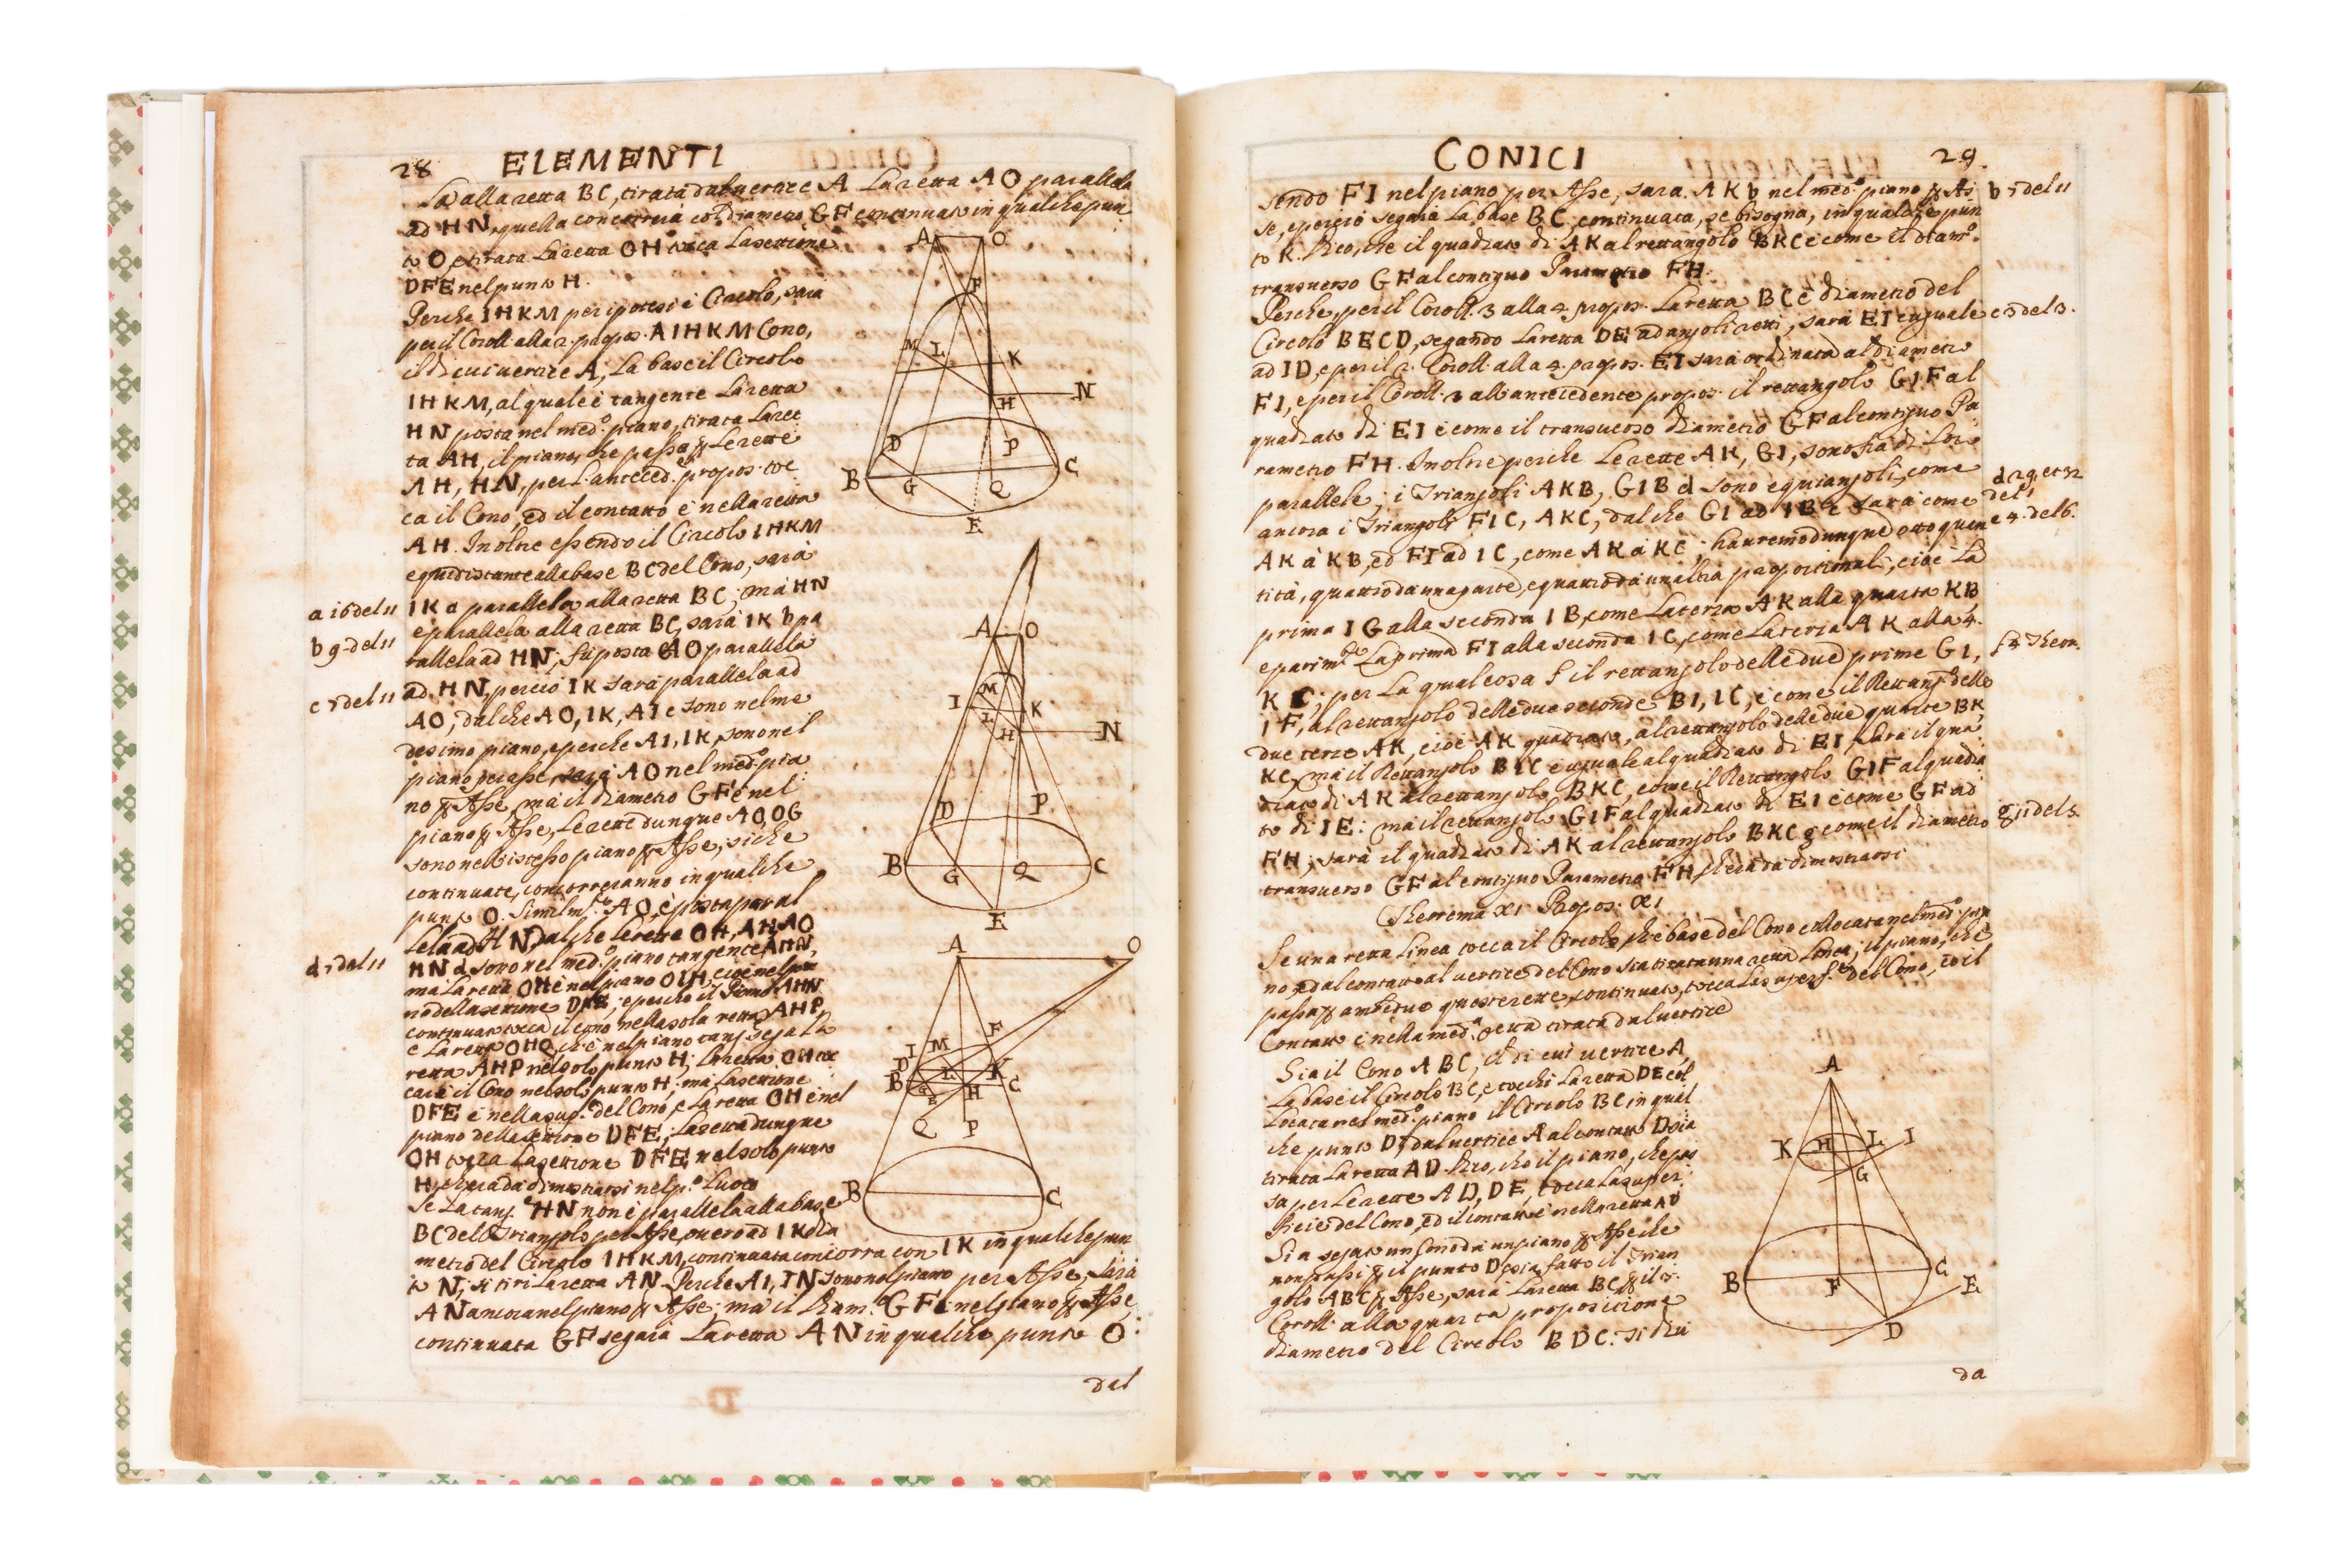 28 ELEMENTI
la alla retta BC, tirata dal vertice A La retta AO parallela
ad HN, quella concorrerà col diametro GF continuato in qualche pun
to O, e tirata La retta OH tocca La settione
DFE nel punto H.
Perche IHKM per ipotesi è Circolo, sarà
per il Coroll. alla 2. propos. AIHKM Cono,
il di cui vertice A, La base il Circolo
IHKM, al quale è tangente La retta
HN posta nel med.o piano, tirata La ret
ta AH, il piano, che passa p Le rette
AH, HN, per L'anteced. propos. toc
ca il Cono, ed il contatto è nella retta
AH. Inoltre essendo il Circolo IHKM
equidistante alla base BC del Cono, sarà
a 16 del 11 IK a parallela alla retta BC; mà HN
b 9 del 11 è parallela alla retta BC, sarà IK b pa
rallela ad HN; si è posta AO parallela
c 7 del 11 ad HN, perciò IK sarà parallela ad
AO; dal che AO, IK, AI c sono nel me
desimo piano, e perche AI, IK, sono nel
piano per asse, sarà AO nel med.o pia
no p Asse, mà il diametro GF è nel
piano p Asse, Le rette dunque AO, OG
sono nell'istesso piano p Asse, siche
continuate, concorreranno in qualche
punto O. Simil.m.te AO, è posta paral
lela ad HN, dal che Le rette OH, AH, AO
d 7 del 11 HN d sono nel med.o piano tangente AHN,
ma La retta OH è nel piano OIH, cioè nel pia
no della settione DFE; e perche il Piano AHN
continuato tocca il cono nella sola retta AHP,
e La retta OHQ, ch'è nel piano tang. sega La
retta AHP nel solo punto H; La retta OH toc
carà il Cono nel solo punto H; ma La settione
DFE è nella sup.e del Cono, e La retta OH è nel
piano della settione DFE; La retta dunque
OH tocca La settione DFE nel solo punto
H, ch'era da dimostrarsi nel p.o Luoco
Se La tang.e HN non è parallela alla base
BC del Triangolo per Asse, overo ad IK dia
metro del Circolo IHKM, continuata concorra con IK in qualche pun
to N; si tiri La retta AN. Perche AI, IN sono nel piano per Asse, sarà
AN ancora nel piano p Asse; ma il Diam.o GF è nel piano p Asse,
continuata GF segarà La retta AN in qualche punto O:
dal
A O
F
M L K
H N
D P
B G Q C
E
A O
M
I K
L
H N
D P
B G Q C
E
A O
F
I M
D L K
B G C
E H
Q P
B C
CONICI 29.
sendo FI nel piano per Asse, sarà AK b nel med.o piano p As b 7 del 11
se, e perciò segarà La base BC continuata, se bisogna, in qualche pun
to K. Dico, che il quadrato di AK al rettangolo BKC è come il diam.o
transverso GF al contiguo Parametro FH.
Perche, per il Coroll. 3 alla 4. propos. La retta BC è diametro del
Circolo BECD, segando La retta DE ad angoli retti, sarà EI c uguale c 3 del 3.
ad ID, e per il 2. Coroll. alla 4. propos. EI sarà ordinata al diametro
FI, e per il Coroll. 3 all'antecedente propos. il rettangolo GIF al
quadrato di EI è come il transverso diametro GF al contiguo Pa
rametro FH. Inoltre perche Le rette AK, GI, sono fra di Loro
parallele; i Triangoli AKB, GIB d sono equiangoli, come d 29. et 32
del 1
ancora i Triangoli FIC, AKC, dal che GI ad IB e sarà come e 4. del 6.
AK à KB, ed FI ad IC, come AK à KC; hauremo dunque otto quan
tità, quattro da una parte, e quattro da un'altra proportionali, cioè La
prima IG alla seconda IB, come La terza AK alla quarta KB
e parim.te La prima FI alla seconda IC, come La terza AK alla 4.
KC; per La qual cosa f il rettangolo delle due prime GI, f 4 Theor.
IF, al rettangolo delle due seconde BI, IC, è come il Rettang.o delle
due terze AK, cioè AK quadrato, al rettangolo delle due quarte BK,
KC, mà il Rettangolo BIC è uguale al quadrato di EI, sarà il qua
drato di AK al rettangolo BKC, come il Rettangolo GIF al quadra
to di IE: ma il rettangolo GIF al quadrato di EI è come GF ad
FH; sarà il quadrato di AK al rettangolo BKC g come il diametro g 11 del 5.
transverso GF al contiguo Parametro FH, ch'era da dimostrarsi
Theorema XI Propos. XI
Se una retta Linea tocca il Circolo, ch'è base del Cono collocata nel med.o pia
no, e dal contatto al vertice del Cono sia tirata una retta Linea; il piano, che
passa p ambedue queste rette, continuato, tocca La superf.e del Cono, ed il
Contatto è nella med.a retta tirata dal vertice
Sia il Cono ABC, il di cui vertice A,
La base il Circolo BC, e tocchi La retta DE col
Locata nel med.o piano il Circolo BC in qual
che punto D; dal vertice A al contatto D sia
tirata La retta AD. Dico, che il piano, che pas
sa per Le rette AD, DE, tocca La super
ficie del Cono, ed il contatto è nella retta AD
Sia segato un Cono da un piano p Asse che
non passi p il punto D, e sia fatto il Trian
golo ABC p Asse, sarà La retta BC p il 3.
Coroll. alla quarta propositione
diametro del Circolo BDC. Si divi
da
A
K H L I
G
B F C E
D